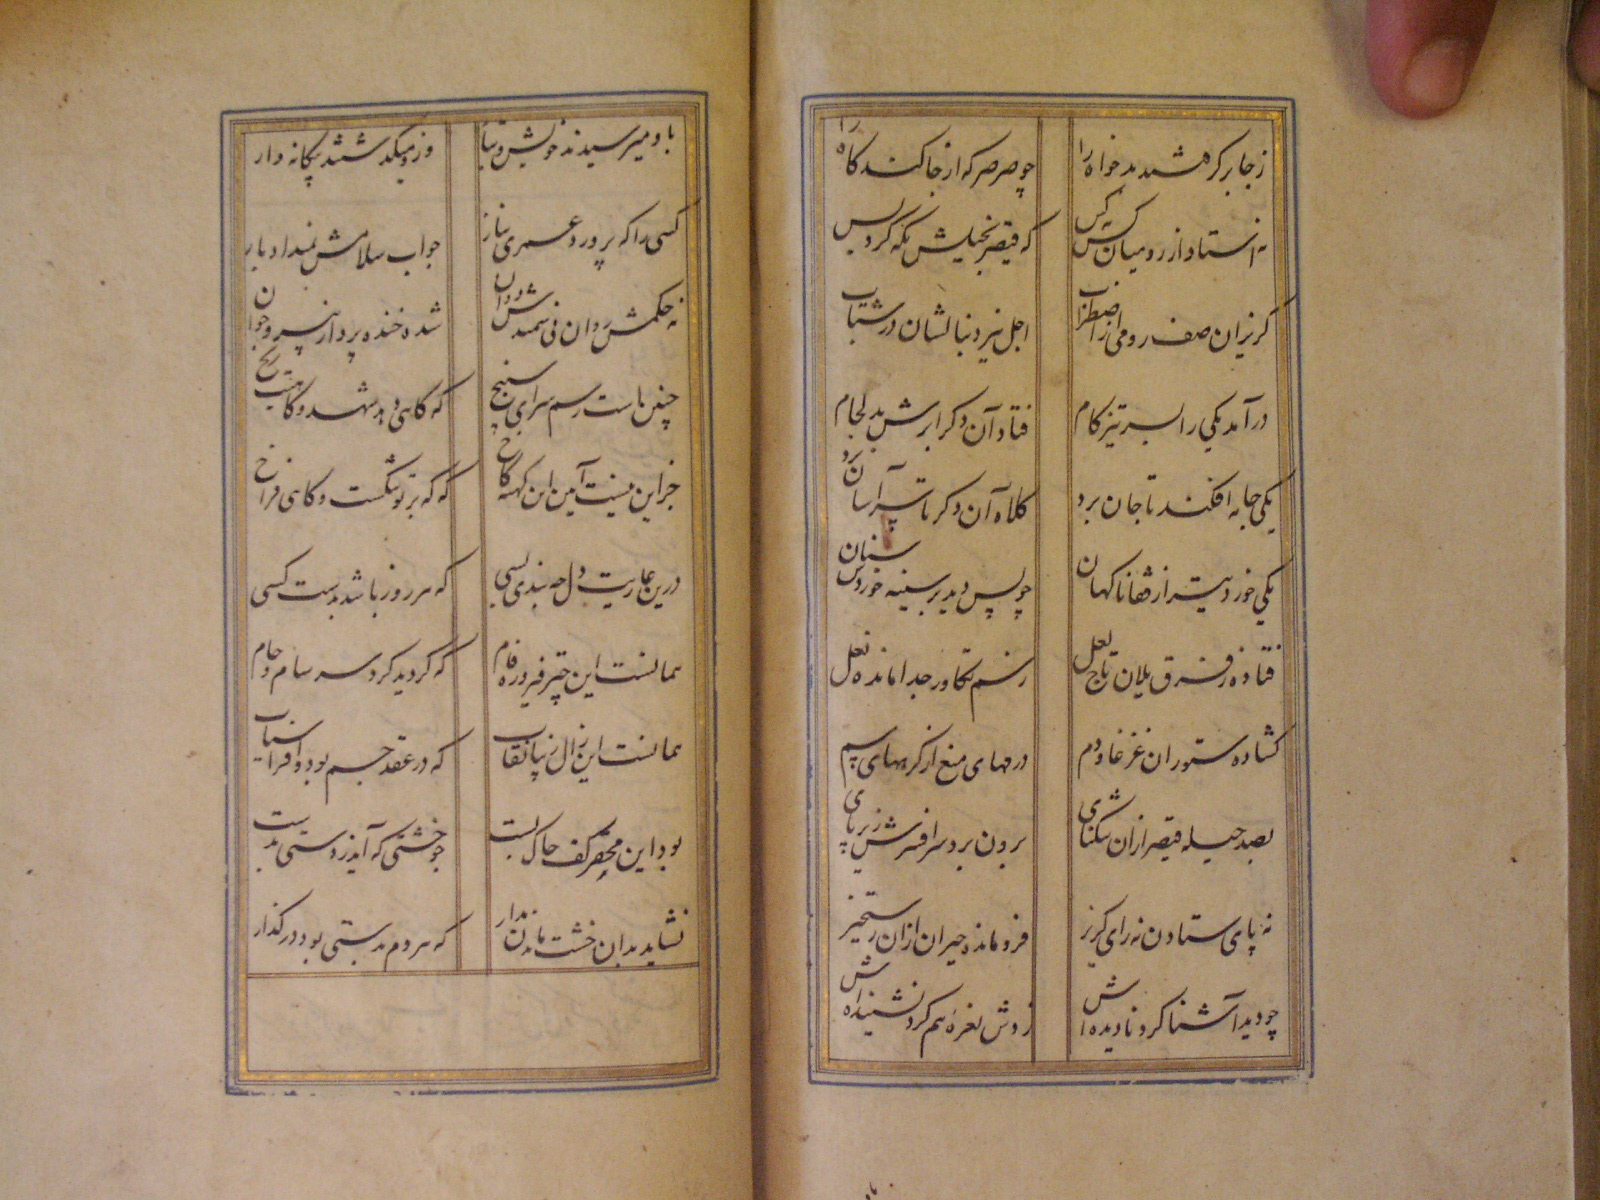 ز جا برکرفتند بدخواه را چو صرصر که از جا کند کاه را
نه استاد از رومیان کس به کس که قیصر بخیلش نکه کرد بس
کریزان صف رومی از اضطراب اجل نیز دنبالشان در شتاب
درآمد یکی را بسر تیز کام فتاد آن دکر ابرش بد لجام
یکی جامه افکند تا جان برد کلاه آن دکر تا سر آسان برد
یکی خورد تیر از قفا ناکهان چو پس دید بر سینه خوردش سنان
فتاده ز فرق یلان تاج لعل ز سم تکاور جدا مانده نعل
کشاده ستوران غرغاو دم درمهای میخ از کرههای سم
بصد حیله قیصر ازان تنکنای برون برد سر افسرش زیر پای
نه پای ستادن نه رای کریز فرو مانده حیران ازان رستخیز
چو دید آشنا کرد نادیده اش زدش نعره هم کرد نشنیده اش
باو میرسیدند خویش و تبار وزو میکذشتند بیکانه وار
کسی را که پرورد عمری بناز جواب سلامش نمیداد باز
نه حکمش روان نی سمندش دوان شده خنده پرداز پیر و جوان
چنین است رسم سرای سپنج که کاهی دهد شهد و کاهی
جز این نیست آیین این کهنه کاخ که که بر تو تنکست و کاهی فراخ
درین عاریت دل چه بندی بسی که هر روز باشد بدست کسی
همانست این چتر فیروزه فام که کردید کرد سر سام و حام
همانست این زال زیبا نقاب که در عقد جم بود و افراسیاب
بود این محقر کف خاک پست چو خشتی که آید ز دستی بدست
نشاید بدان خشت ماندن مدار که هر دم بدستی بود در کذار